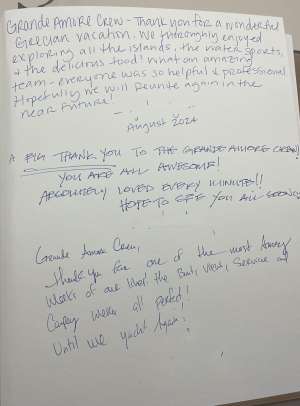 GRANDE AMORE CREW - THANK YOU FOR A WONDERFUL
GRECIAN VACATION. WE THOROUGHLY ENJOYED
EXPLORING ALL THE ISLANDS, THE WATER SPORTS,
& THE DELICIOUS FOOD! WHAT AN AMAZING
TEAM - EVERYONE WAS SO HELPFUL & PROFESSIONAL
HOPEFULLY WE WILL REUNITE AGAIN IN THE
NEAR FUTURE!
AUGUST 2024
A BIG THANK YOU TO THE GRANDE AMORE CREW!!
YOU ARE ALL AWESOME!
ABSOLUTELY LOVED EVERY MINUTE!!
HOPE TO SEE YOU ALL SOON
Grande Amore Crew,
Thank you for one of the most Amazing
Weeks of our lives! The Boat, View, Service and
were all perfect!
Until we yacht Again!